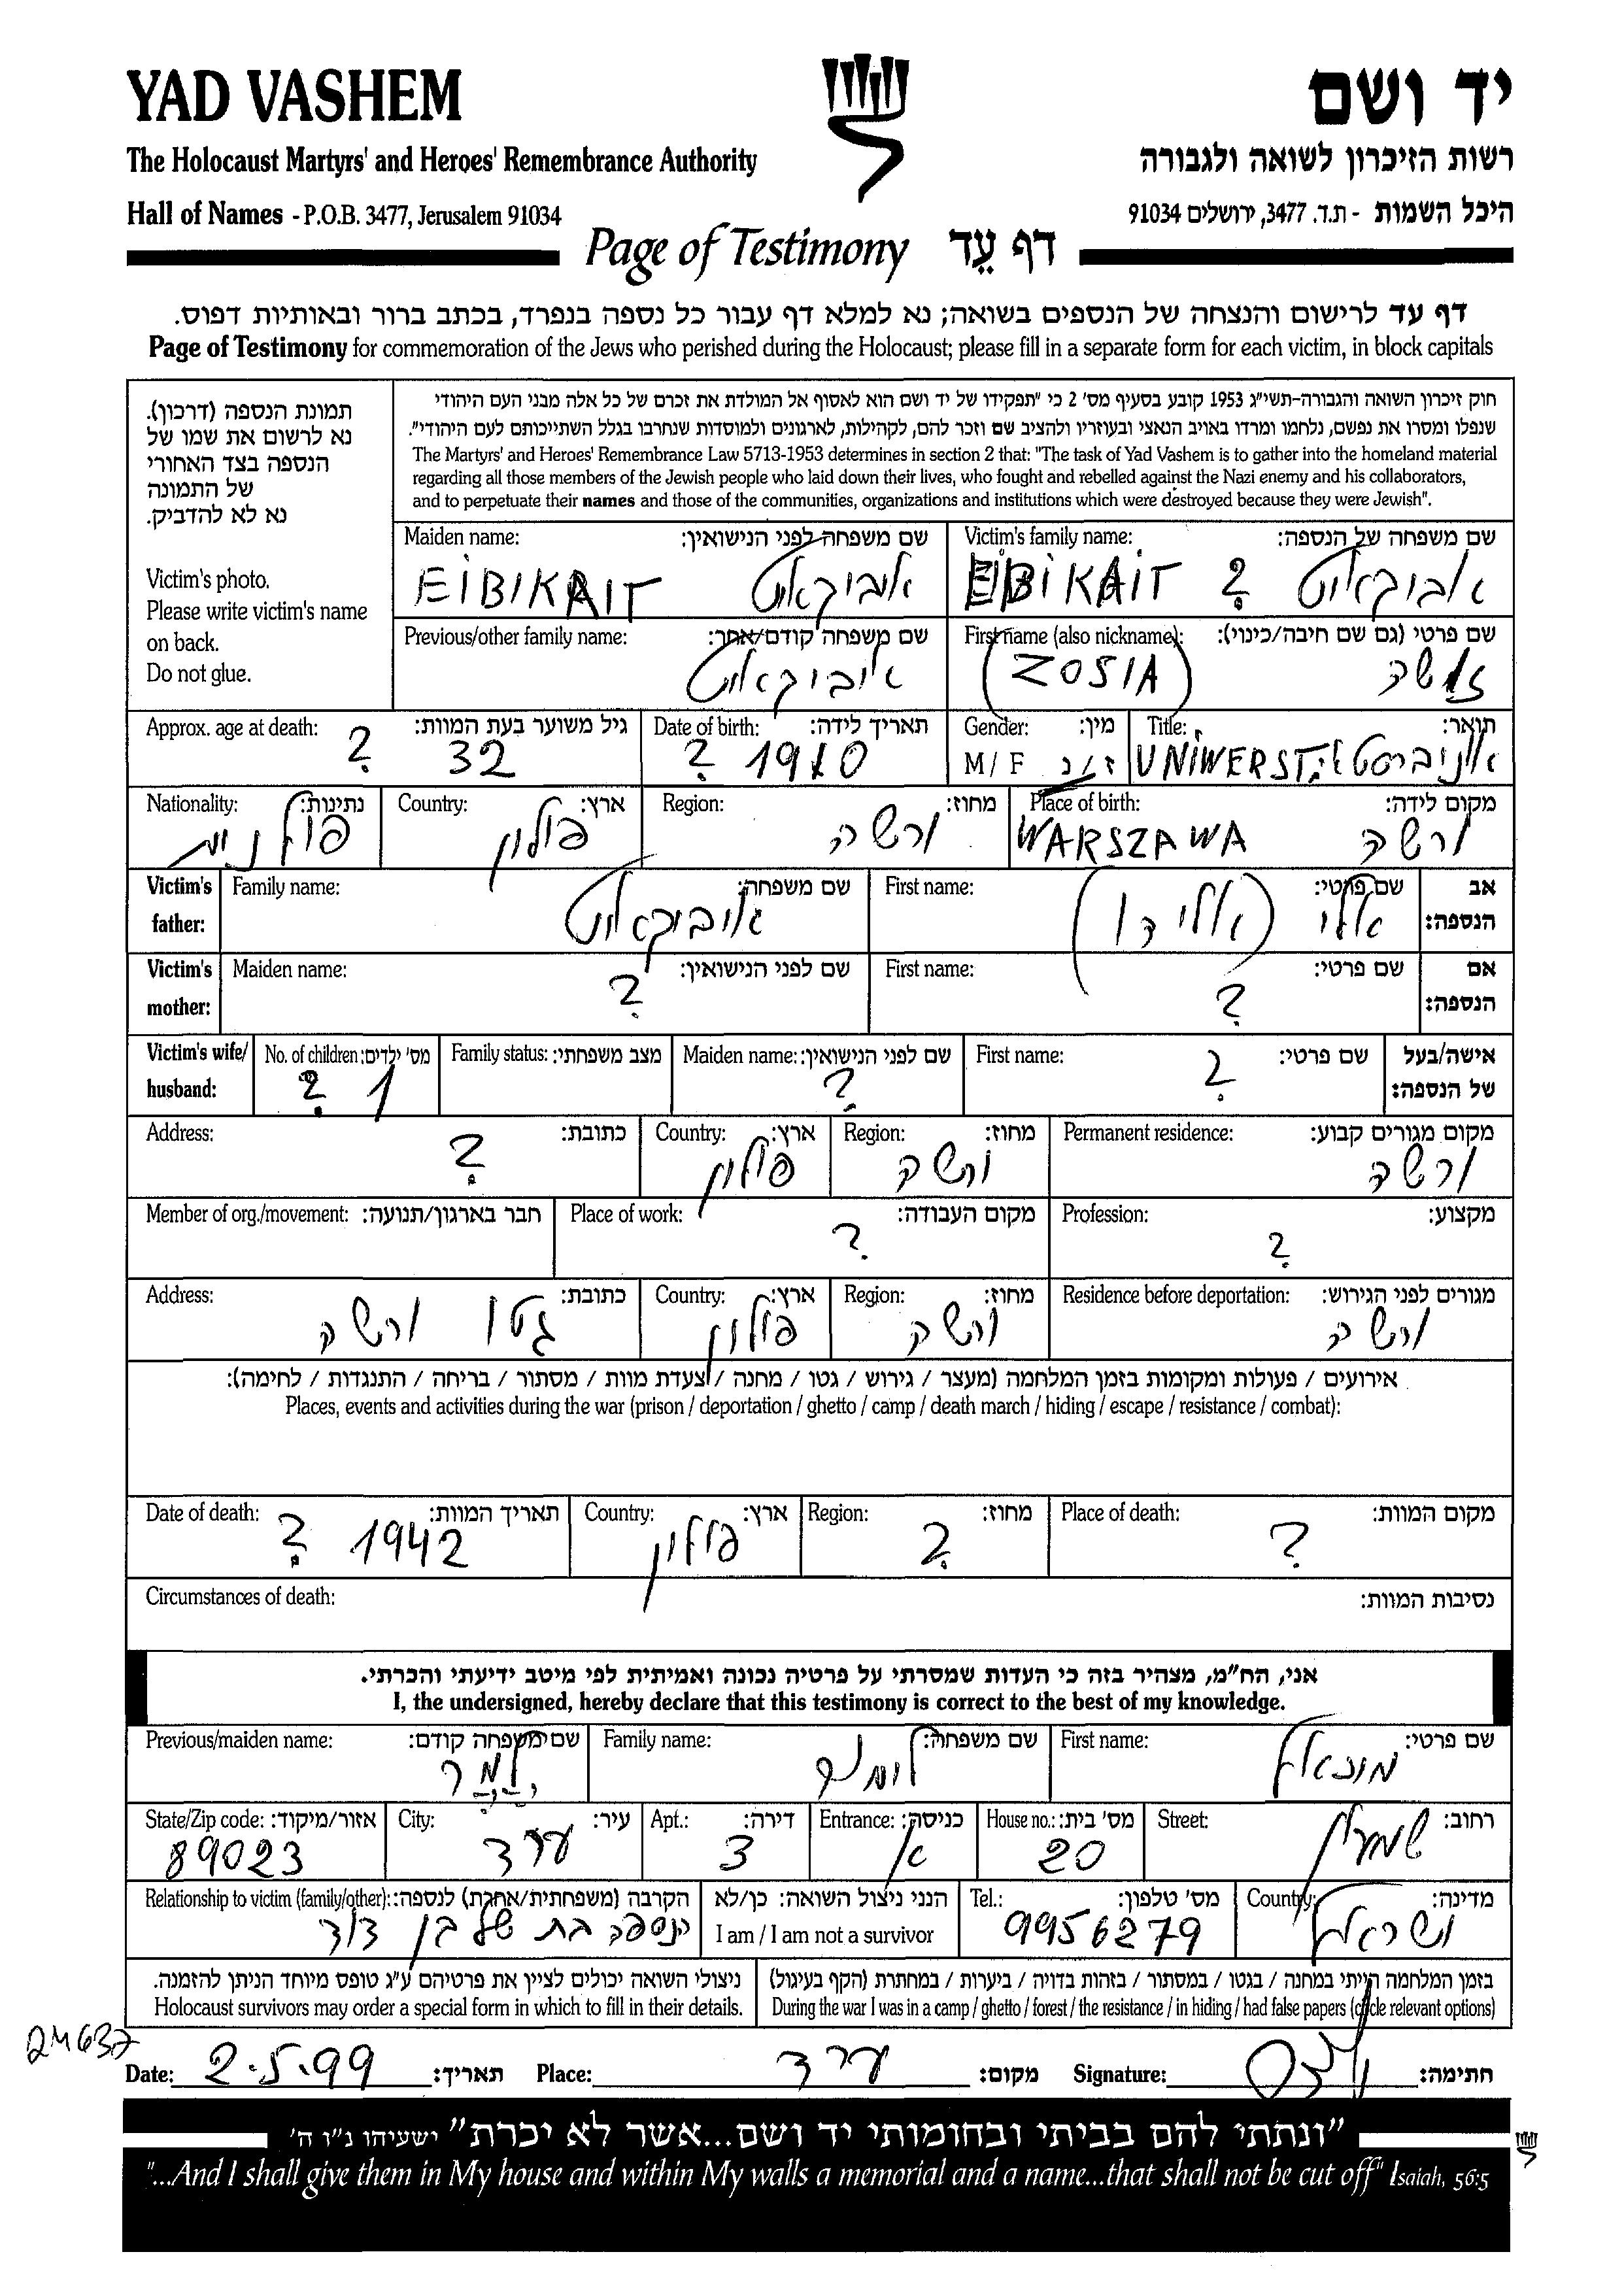 YAD VASHEM
יד ושם
The Holocaust Martyrs' and Heroes' Remembrance Authority
רשות הזיכרון לשואה ולגבורה
Hall of Names - P.O.B. 3477, Jerusalem 91034
היכל השמות - ת.ד. 3477, ירושלים 91034
Page of Testimony דף עֵד
דף עד לרישום והנצחה של הנספים בשואה; נא למלא דף עבור כל נספה בנפרד, בכתב ברור ובאותיות דפוס.
Page of Testimony for commemoration of the Jews who perished during the Holocaust; please fill in a separate form for each victim, in block capitals
תמונת הנספה (דרכון).
נא לרשום את שמו של
הנספה בצד האחורי
של התמונה
נא לא להדביק.
Victim's photo.
Please write victim's name
on back.
Do not glue.
חוק זיכרון השואה והגבורה-תשי"ג 1953 קובע בסעיף מס' 2 כי "תפקידו של יד ושם הוא לאסוף אל המולדת את זכרם של כל אלה מבני העם היהודי
שנפלו ומסרו את נפשם, נלחמו ומרדו באויב הנאצי ובעוזריו ולהציב שם וזכר להם, לקהילות, לארגונים ולמוסדות שנחרבו בגלל השתייכותם לעם היהודי".
The Martyrs' and Heroes' Remembrance Law 5713-1953 determines in section 2 that: "The task of Yad Vashem is to gather into the homeland material
regarding all those members of the Jewish people who laid down their lives, who fought and rebelled against the Nazi enemy and his collaborators,
and to perpetuate their names and those of the communities, organizations and institutions which were destroyed because they were Jewish".
Maiden name: שם משפחה לפני הנישואין:
EIBIKAIT איביקאיט
Victim's family name: שם משפחה של הנספה:
EIBIKAIT ? איביקאיט
Previous/other family name: שם משפחה קודם/אחר:
איביקאיט
First name (also nickname): שם פרטי (גם שם חיבה/כינוי):
(ZOSIA) זושה
Approx. age at death: גיל משוער בעת המוות:
? 32
Date of birth: תאריך לידה:
? 1910
Gender: מין:
M / F ז / נ
Title: תואר:
UNIWERST. אוניברסטאי
Nationality: נתינות:
פולניה
Country: ארץ:
פולין
Region: מחוז:
ורשה
Place of birth: מקום לידה:
WARSZAWA ורשה
Victim's father: Family name: שם משפחה:
איביקאיט
First name: שם פרטי:
אלי (אליהו)
אב הנספה:
Victim's mother: Maiden name: שם לפני הנישואין:
?
First name: שם פרטי:
?
אם הנספה:
Victim's wife/ husband:
No. of children: מס' ילדים:
? 1
Family status: מצב משפחתי:
Maiden name: שם לפני הנישואין:
?
First name: שם פרטי:
?
אישה/בעל של הנספה:
Address: כתובת:
?
Country: ארץ:
פולין
Region: מחוז:
ורשה
Permanent residence: מקום מגורים קבוע:
ורשה
Member of org./movement: חבר בארגון/תנועה:
Place of work: מקום העבודה:
?
Profession: מקצוע:
?
Address: כתובת:
גטו ורשה
Country: ארץ:
פולין
Region: מחוז:
ורשה
Residence before deportation: מגורים לפני הגירוש:
ורשה
אירועים / פעולות ומקומות בזמן המלחמה (מעצר / גירוש / גטו / מחנה / צעדת מוות / מסתור / בריחה / התנגדות / לחימה):
Places, events and activities during the war (prison / deportation / ghetto / camp / death march / hiding / escape / resistance / combat):
Date of death: תאריך המוות:
? 1942
Country: ארץ:
פולין
Region: מחוז:
?
Place of death: מקום המוות:
?
Circumstances of death: נסיבות המוות:
אני, הח"מ, מצהיר בזה כי העדות שמסרתי על פרטיה נכונה ואמיתית לפי מיטב ידיעתי והכרתי.
I, the undersigned, hereby declare that this testimony is correct to the best of my knowledge.
Previous/maiden name: שם משפחה קודם:
Family name: שם משפחה:
First name: שם פרטי:
State/Zip code: אזור/מיקוד:
89023
City: עיר:
ערד
Apt.: דירה:
3
Entrance: כניסה:
א
House no.: מס' בית:
20
Street: רחוב:
Relationship to victim (family/other): הקרבה (משפחתית/אחרת) לנספה:
בת של בן דוד
הנני ניצול השואה: כן/לא
I am / I am not a survivor
Tel.: מס' טלפון:
9956279
Country: מדינה:
ישראל
ניצולי השואה יכולים לציין את פרטיהם ע"ג טופס מיוחד הניתן להזמנה.
Holocaust survivors may order a special form in which to fill in their details.
בזמן המלחמה הייתי במחנה / בגטו / במסתור / בזהות בדויה / ביערות / במחתרת (הקף בעיגול)
During the war I was in a camp / ghetto / forest / the resistance / in hiding / had false papers (circle relevant options)
Date: 2.5.99 תאריך: Place: ערד מקום: Signature: חתימה:
"ונתתי להם בביתי ובחומותי יד ושם...אשר לא יכרת" ישעיהו נ"ו ה'
"...And I shall give them in My house and within My walls a memorial and a name...that shall not be cut off" Isaiah, 56:5